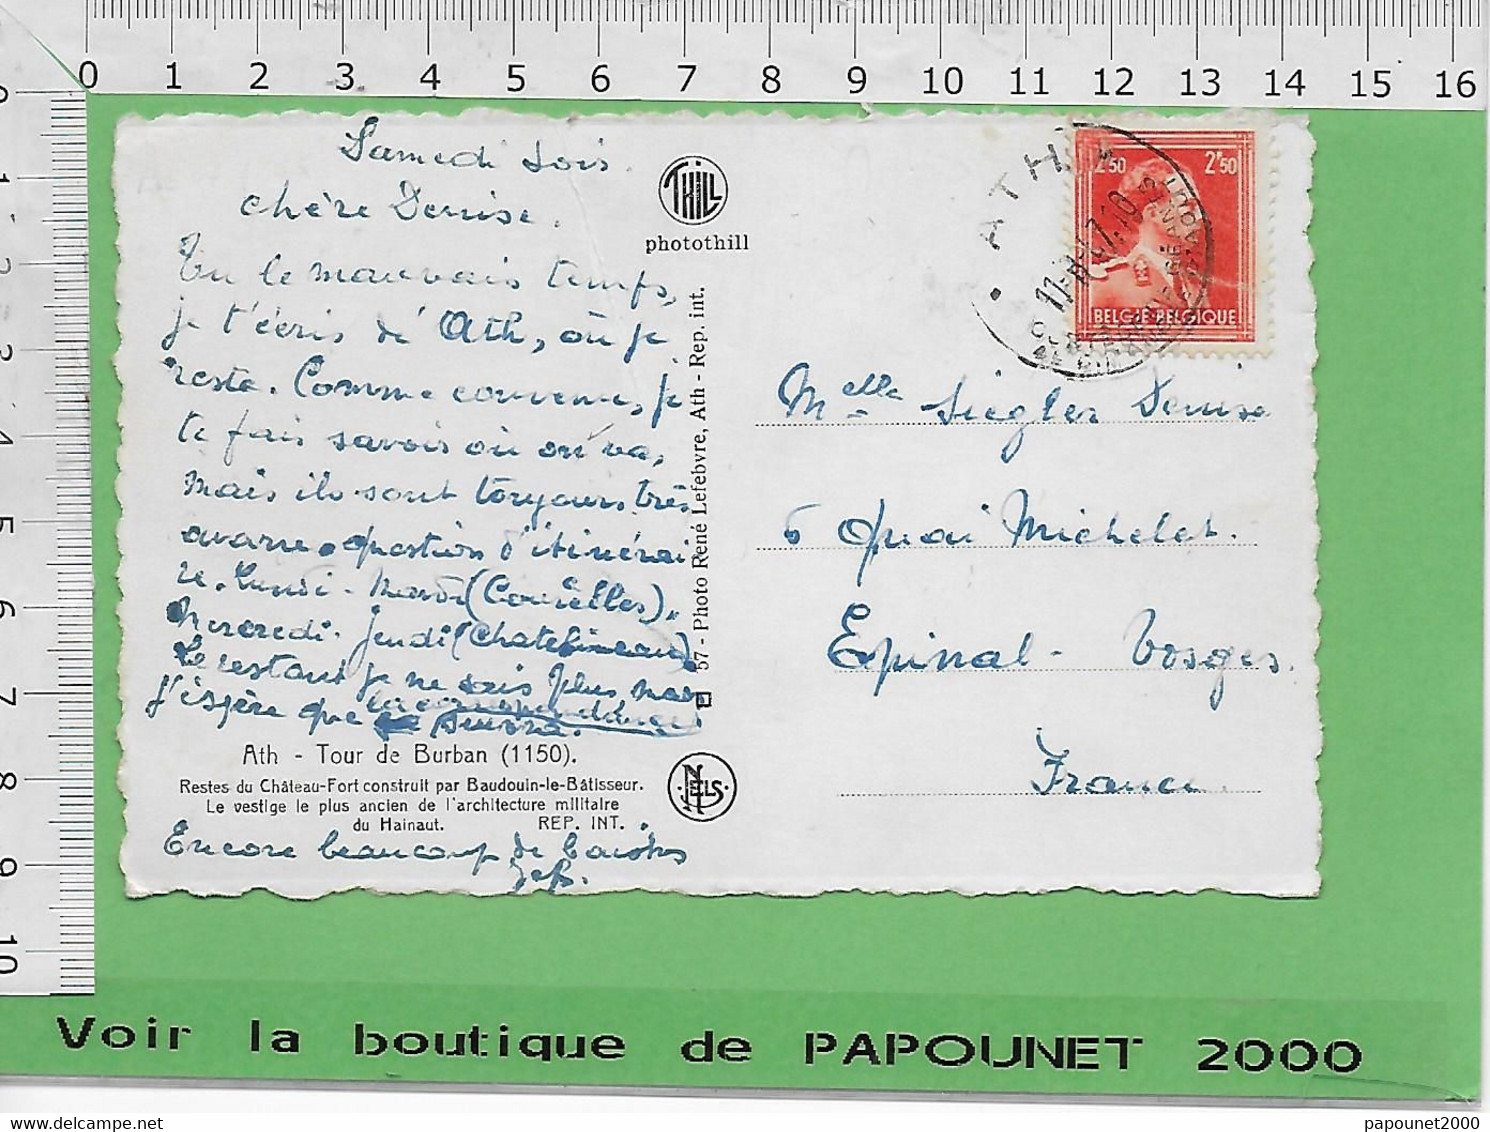 0 1 2 3 4 5 6 7 8 9 10 11 12 13 14 15 16
0 1 2 3 4 5 6 7 8 9 10
Samedi soir.
chère Denise.
Vu le mauvais temps,
je t'écris d'Ath, où je
reste. Comme convenu, je
te fais savoir où on va,
mais ils sont toujours très
avare question d'itinérai
re. Lundi - Mardi (Courcelles).
Mercredi. Jeudi (Chatelineau)
Le restant je ne sais plus mais
J'espère que la correspondance
suivra.
Ath - Tour de Burban (1150).
Restes du Château-Fort construit par Baudouin-le-Bâtisseur.
Le vestige le plus ancien de l'architecture militaire
du Hainaut. REP. INT.
Encore beaucoup de baisers
Jef.
THILL
photothill
57 - Photo René Lefebvre, Ath - Rep. int.
NELS
ATH
2F50 2F50
BELGIE-BELGIQUE
Melle Siegler Denise
6 Quai Michelet.
Epinal - Vosges.
France.
Voir la boutique de PAPOUNET 2000
papounet2000